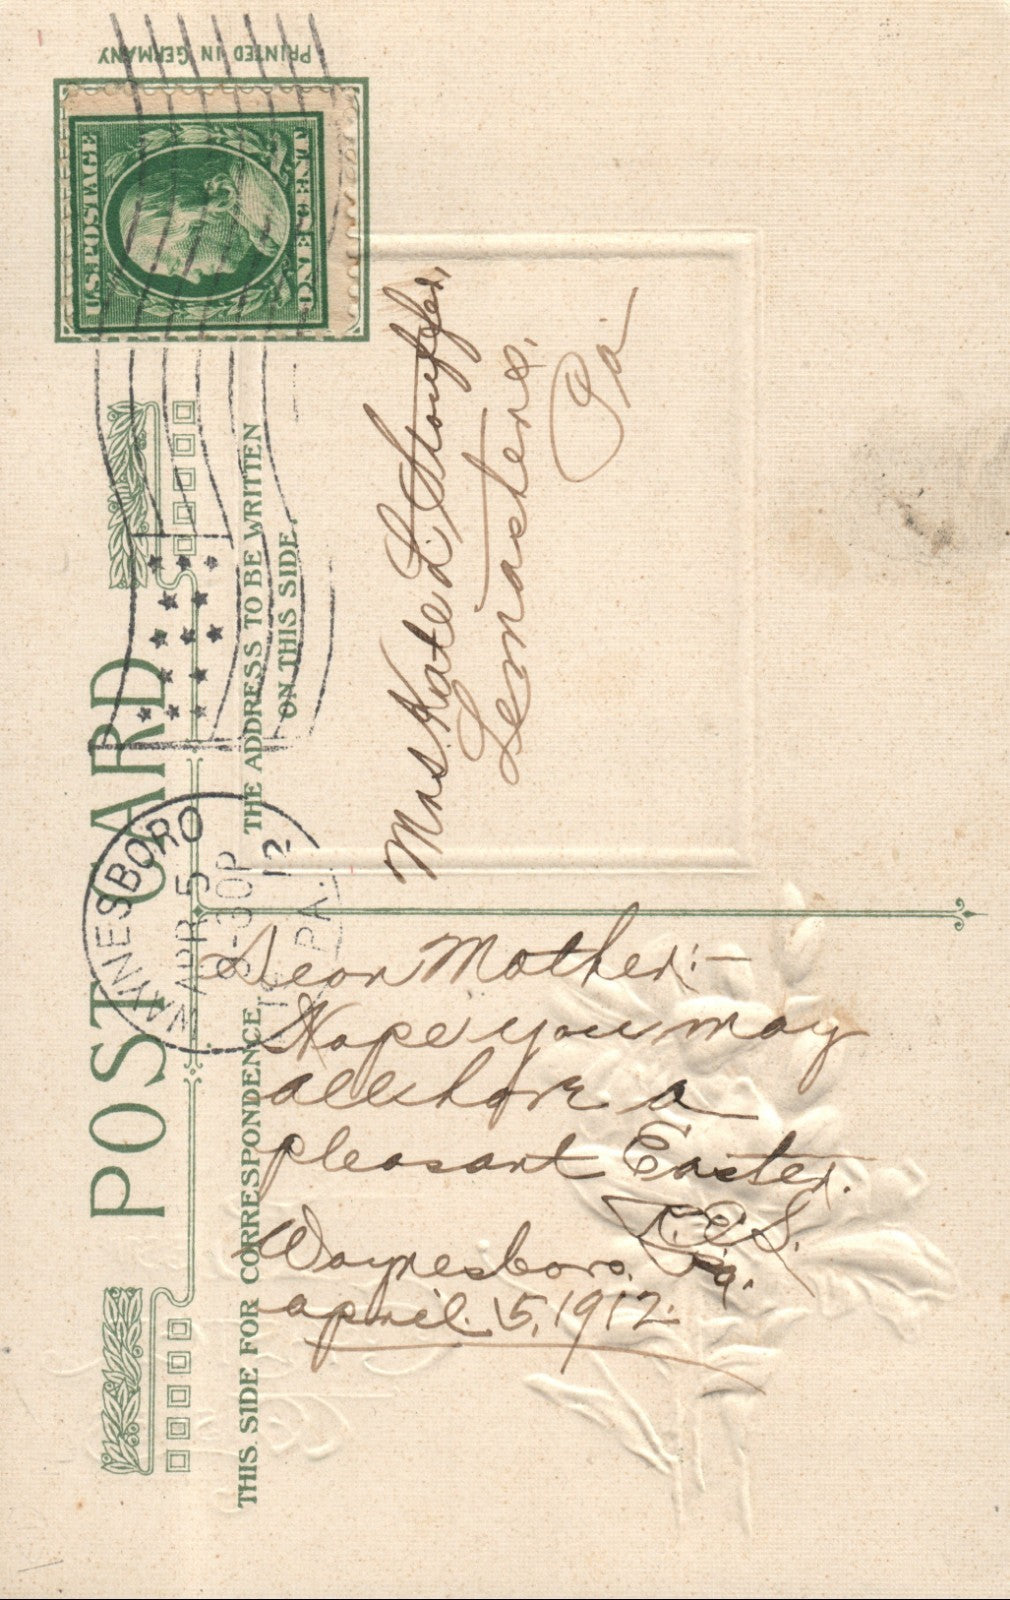 PRINTED IN GERMANY
U.S. POSTAGE
ONE CENT
POST CARD
THE ADDRESS TO BE WRITTEN
ON THIS SIDE.
WAYNESBORO
APR 5
8-30P
12
PA.
Mrs Kate L. Stouffer,
Lemasters,
Pa
THIS SIDE FOR CORRESPONDENCE
Dear Mother:-
Hope you may
all have a
pleasant Easter.
R.E.S.
Waynesboro. Pa.
April. 5, 1912.